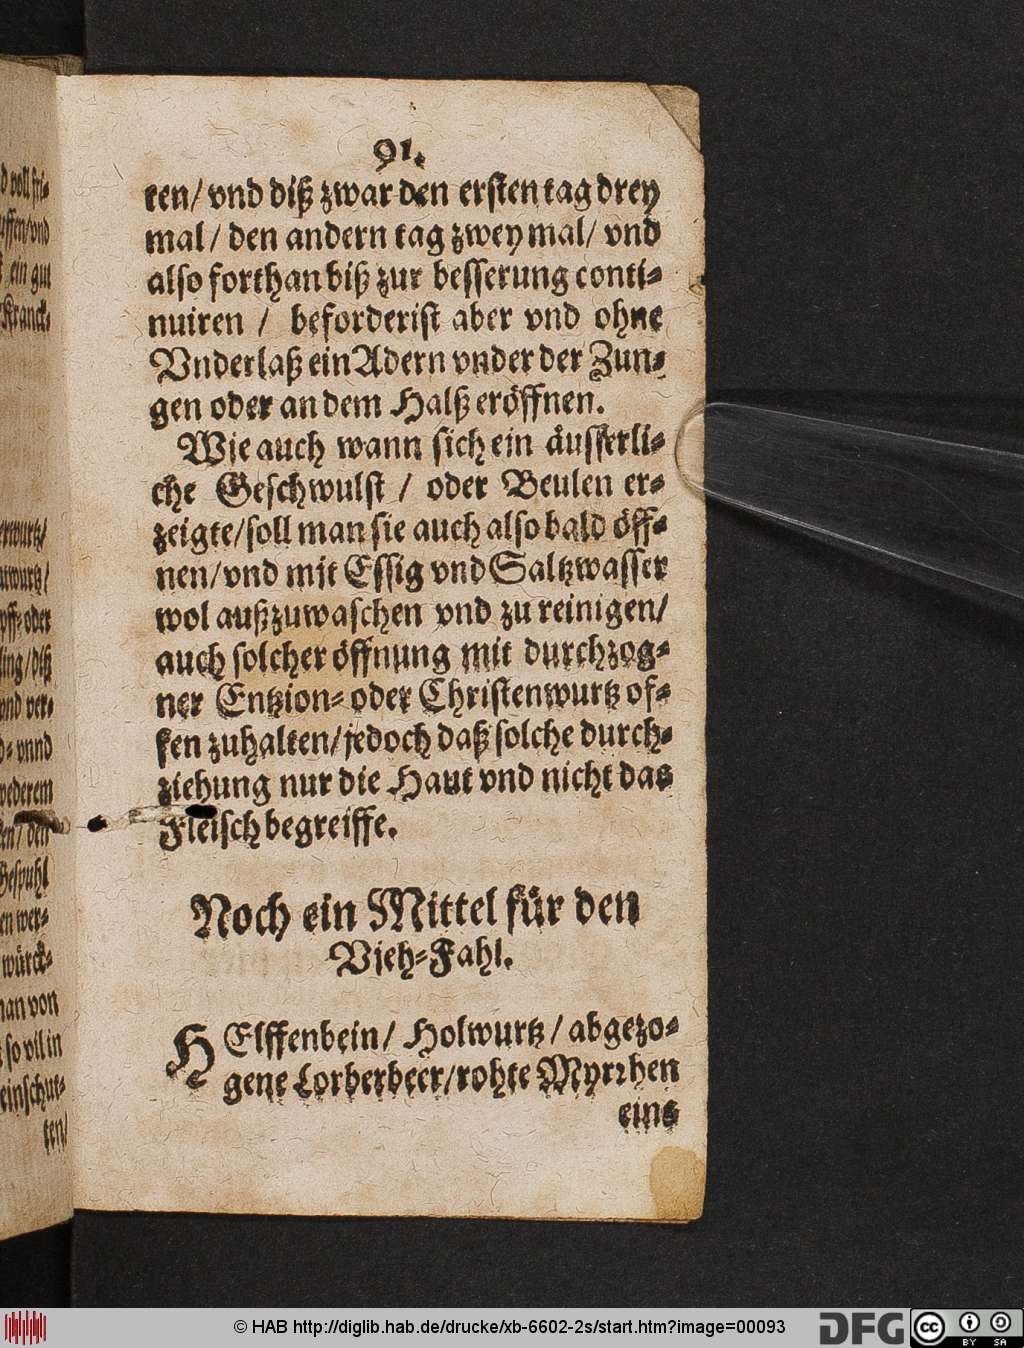 91.
ten/ vnd diß zwar den ersten tag drey
mal/ den andern tag zwey mal/ vnd
also forthan biß zur besserung conti-
nuiren / beforderist aber vnd ohne
Vnderlaß ein Adern vnder der Zun-
gen oder an dem Halß eröffnen.
Wie auch wann sich ein äusserli-
che Geschwulst / oder Beulen er-
zeigte/ soll man sie auch also bald öff-
nen/ vnd mit Essig vnd Saltzwasser
wol außzuwaschen vnd zu reinigen/
auch solcher öffnung mit durchzog-
ner Entzion- oder Christenwurtz of-
fen zuhalten/ jedoch daß solche durch-
ziehung nur die Haut vnd nicht das
Fleisch begreiffe.
Noch ein Mittel für den
Vieh-Fahl.
HElffenbein/ Holwurtz/ abgezo-
gene Lorberbeer/ rohte Myrrhen
eins
d voll fri-
uffen/ vnd
ein gut
Kranck-
erwurtz/
uwurtz/
pff- oder
ling/ diß
vnd ver-
d- vnnd
wederem
en/ den
Gespuhl
en wer-
würck-
nan von
so vil in
einschüt-
ten/
© HAB http://diglib.hab.de/drucke/xb-6602-2s/start.htm?image=00093
DFG
cc
BY SA